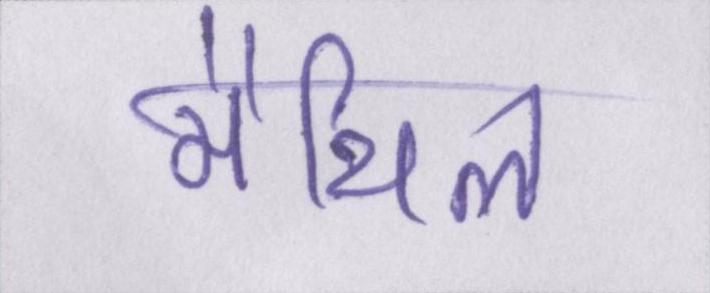 मैथिल